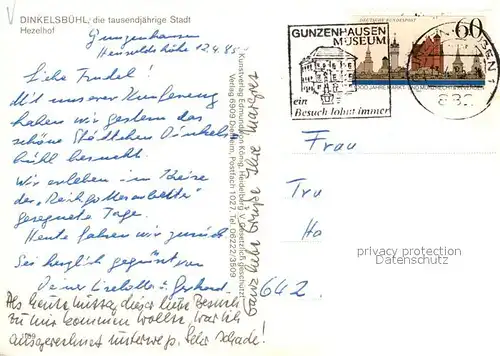 DINKELSBÜHL, die tausendjährige Stadt
Hezelhof
Gunzenhausen
Hensoldshöhe 12.4.85
Liebe Trudel!
Mit unserer
haben wir gestern das
schöne Städtchen Dinkels
bühl besucht.
Wir erleben im Kreise
der "Reichgottesarbeiter"
gesegnete Tage.
Heute fahren wir zurück
Sei herzlich gegrüsst von
Deiner Liselotte u. Gerhard.
Als heute mittag dieser liebe Besuch
zu mir kommen wollte, war ich
ausgerechnet unterwegs. Sehr schade!
Ganz liebe Grüsse Ihre Margret
1769
Kunstverlag Edmund von König, Heidelberg V. Gesetzlich geschützt
Verlag 6909 Dielheim, Postfach 1027, Tel. 06222/3509
GUNZENHAUSEN
MUSEUM
ein
Besuch lohnt immer
DEUTSCHE BUNDESPOST
60
882
Frau
Tru
Ho
642.
privacy protection
watermark